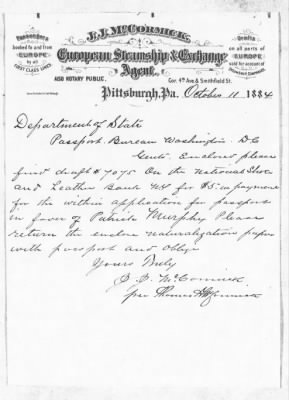 Passengers
booked to and from
EUROPE
by all
FIRST CLASS LINES
J. J. McCORMICK,
European Steamship & Exchange
Agent.
ALSO NOTARY PUBLIC.
Cor. 4th Avenue & Smithfield St.
Drafts
on all parts of
EUROPE
sold for account of
Pittsburgh, Pa. October 11 1884
Department of State
Passport Bureau Washington D.C
Gents. Enclosed please
find draft # 7075 On the National Shoe
and Leather Bank N.Y for $5.00 payment
for the within application for passport
in favor of Patrick Murphy Please
return the enclose naturalization papers
with passport and oblige
Yours Truly
J. J. McCormick
per Thomas McCormick